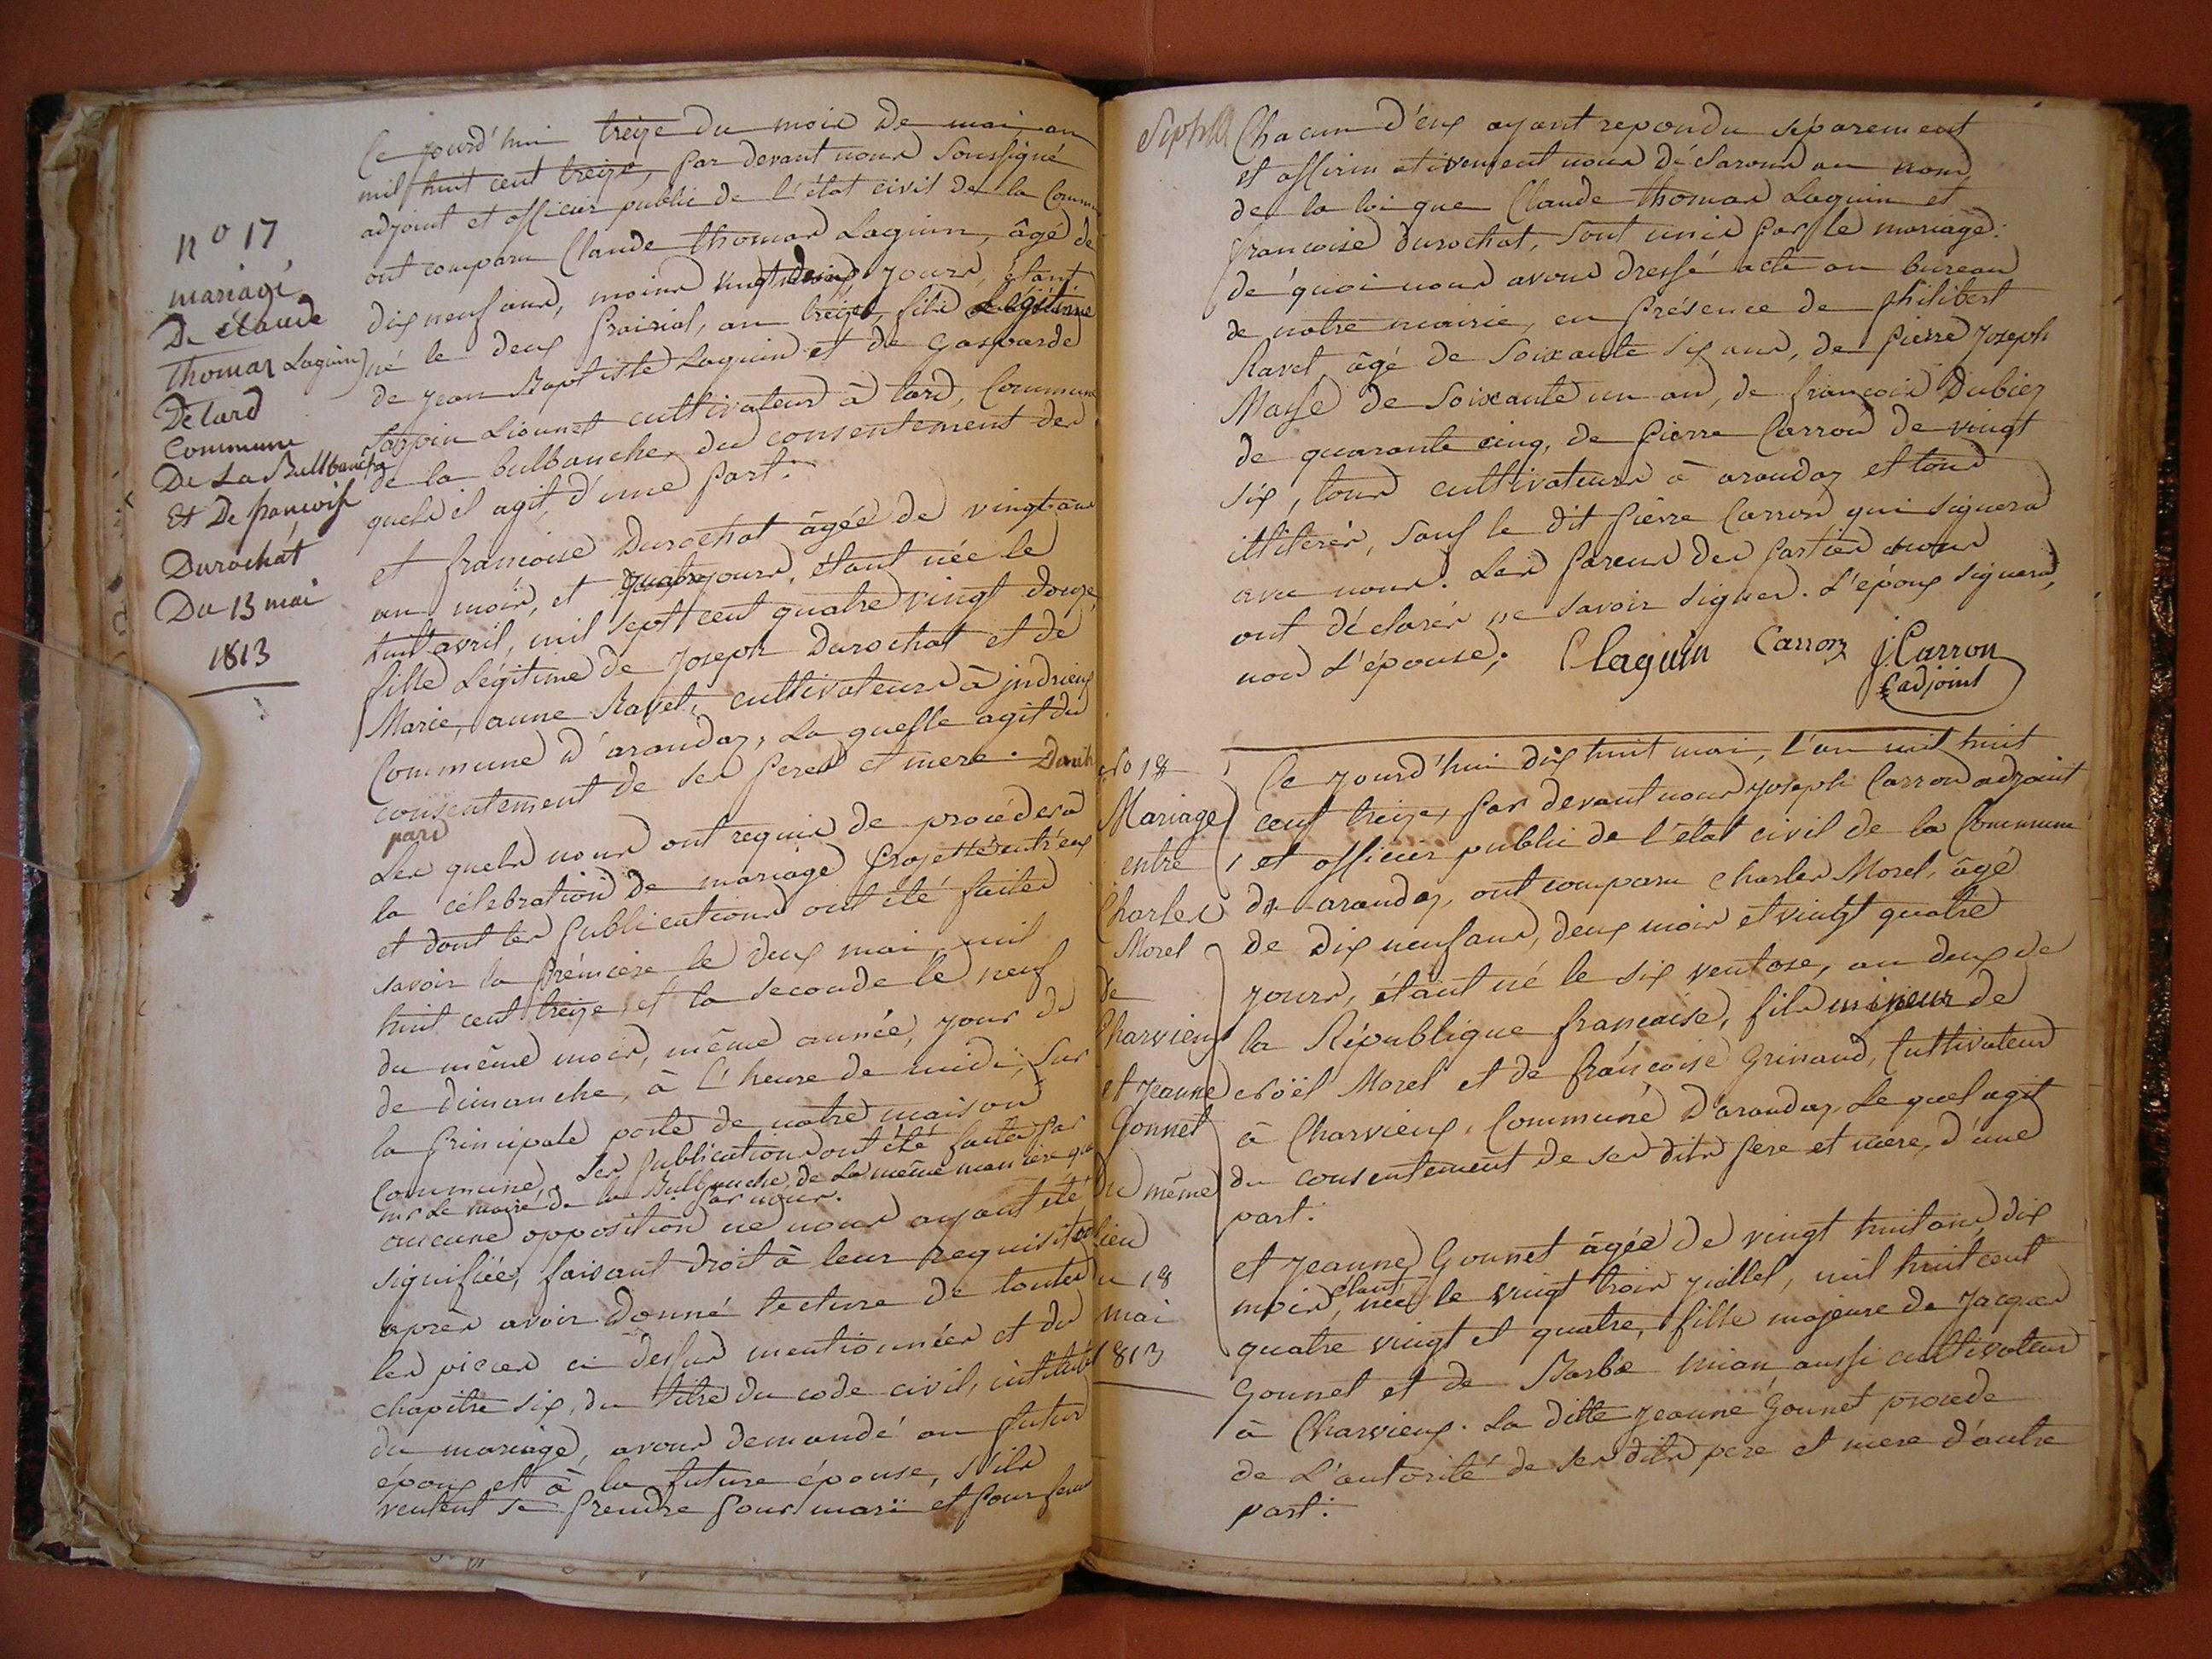 n° 17
mariage
De Claude
Thomas Laguin
De lard
Commune
De La Bullbauche
Et De francoise
Durochat
Du 13 mai
1813
Ce jourd'hui treize du mois de mai, an
mil huit cent treize, par devant nous soussigné
adjoint et officier public de l'état civil de la Commune
ont comparu Claude thomas Laguin, âgé de
dix neuf ans, moins vingt jours, étant
né le deux prairial, an treize, fils légitime
de jean Baptiste Laguin et de Gasparde
Lionnet cultivateurs à lard, Commune
de la bulbauche, du consentement des
quels il agit, d'une part.
et francoise Durochat âgée de vingt ans
un mois, et quatre jours, étant née le
huit avril, mil sept cent quatre vingt douze
fille Légitime de Joseph Durochat et de
Marie, anne Ravet, cultivateurs à indrieux
Commune d'arandaz, La quelle agit du
consentement de ses peres et mere. D'autre
part
Les quels nous ont requis de procéder à
la célébration de mariage projetté entr'eux
et dont les publications ont été faites
savoir la première le deux mai, mil
huit cent treize, et la seconde le neuf
du même mois, même année, jour de
de dimanche, à l'heure de midi, sur
la principale porte de notre maison
Commune. Les publications ont été faites par
mr Le maire de la Bulbauche, de la même maniere que
par nous.
aucune opposition ne nous ayant été
signifiée, faisant droit à leur requisition
après avoir donné lecture de toutes
les pieces ci dessus mentionnées et du
chapitre six, du titre du code civil, intitulé
du mariage, avons demandé au futur
époux et à la future épouse, s'ils
veulent se prendre pour mari et pour femme
Chacun d'eux ayant repondu séparement
et affirmativement nous déclarons au nom
de la loi que Claude thomas Laguin et
francoise Durochat, sont unis par le mariage:
de quoi nous avons dressé acte au bureau
de notre mairie, en présence de philibert
Ravet âgé de soixante six ans, de pierre joseph
Masse de soixante un an, de francois Dubiez
de quarante cinq, de pierre Carron de vingt
six, tous cultivateurs à arandaz et tous
illiterés, sauf le dit pierre Carron qui signera
avec nous. Les parens des parties nous
ont déclarés ne savoir signer. L'époux signera,
non L'épouse;
C laguin Carron j. Carron
adjoint
No 18
Mariage
entre
Charles
Morel
de
Charvieux
et Jeanne
Gonnet
du même
lieu
du 18
mai
1813
Ce jourd'hui dix huit mai, l'an mil huit
cent treize, par devant nous joseph Carron adjoint
et officier public de l'état civil de la Commune
de arandaz, ont comparu Charles Morel, âgé
de dix neuf ans, deux mois et vingt quatre
jours, étant né le six ventose, an deux de
la République francaise, fils mineur de
Noël Morel et de francoise Grinand, Cultivateurs
à Charvieux, Commune d'arandaz, Le quel agit
du consentement de ses dits pere et mere, d'une
part.
et jeanne Gonnet âgée de vingt huit ans dix
mois, étant née le vingt trois juillet, mil huit cent
quatre vingt et quatre, fille majeure de Jacques
Gonnet et de Barbe aussi cultivateurs
à Charvieux. La ditte jeanne Gonnet procede
de L'autorité de ses dits pere et mere d'autre
part.